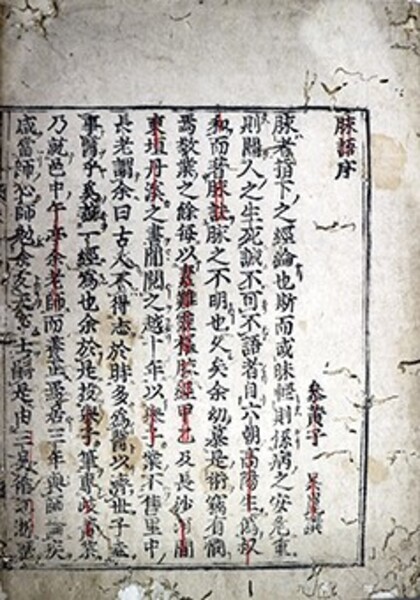 脉語序
參黃子 吳崑撰
脉者指下之經論也斷而或昧輕則係病之安危重
則關人之生死誠不可不語者自六朝高陽生偽叔
和而著脉訣脉之不明也久矣余幼慕是術竊有間
焉敬業之餘每以素難靈樞脉經甲乙及長沙河間
東垣丹溪之書間閱之越十年以舉子業不售里中
長老謂余曰古人不得志於時多為醫以濟世子盍
事醫乎奚一經為也余於是投舉子筆專岐黃業
乃就邑中午亭余老師而養正焉居三年與師談疾
咸當師心師勉余友天下士是由三吳循江浙歷